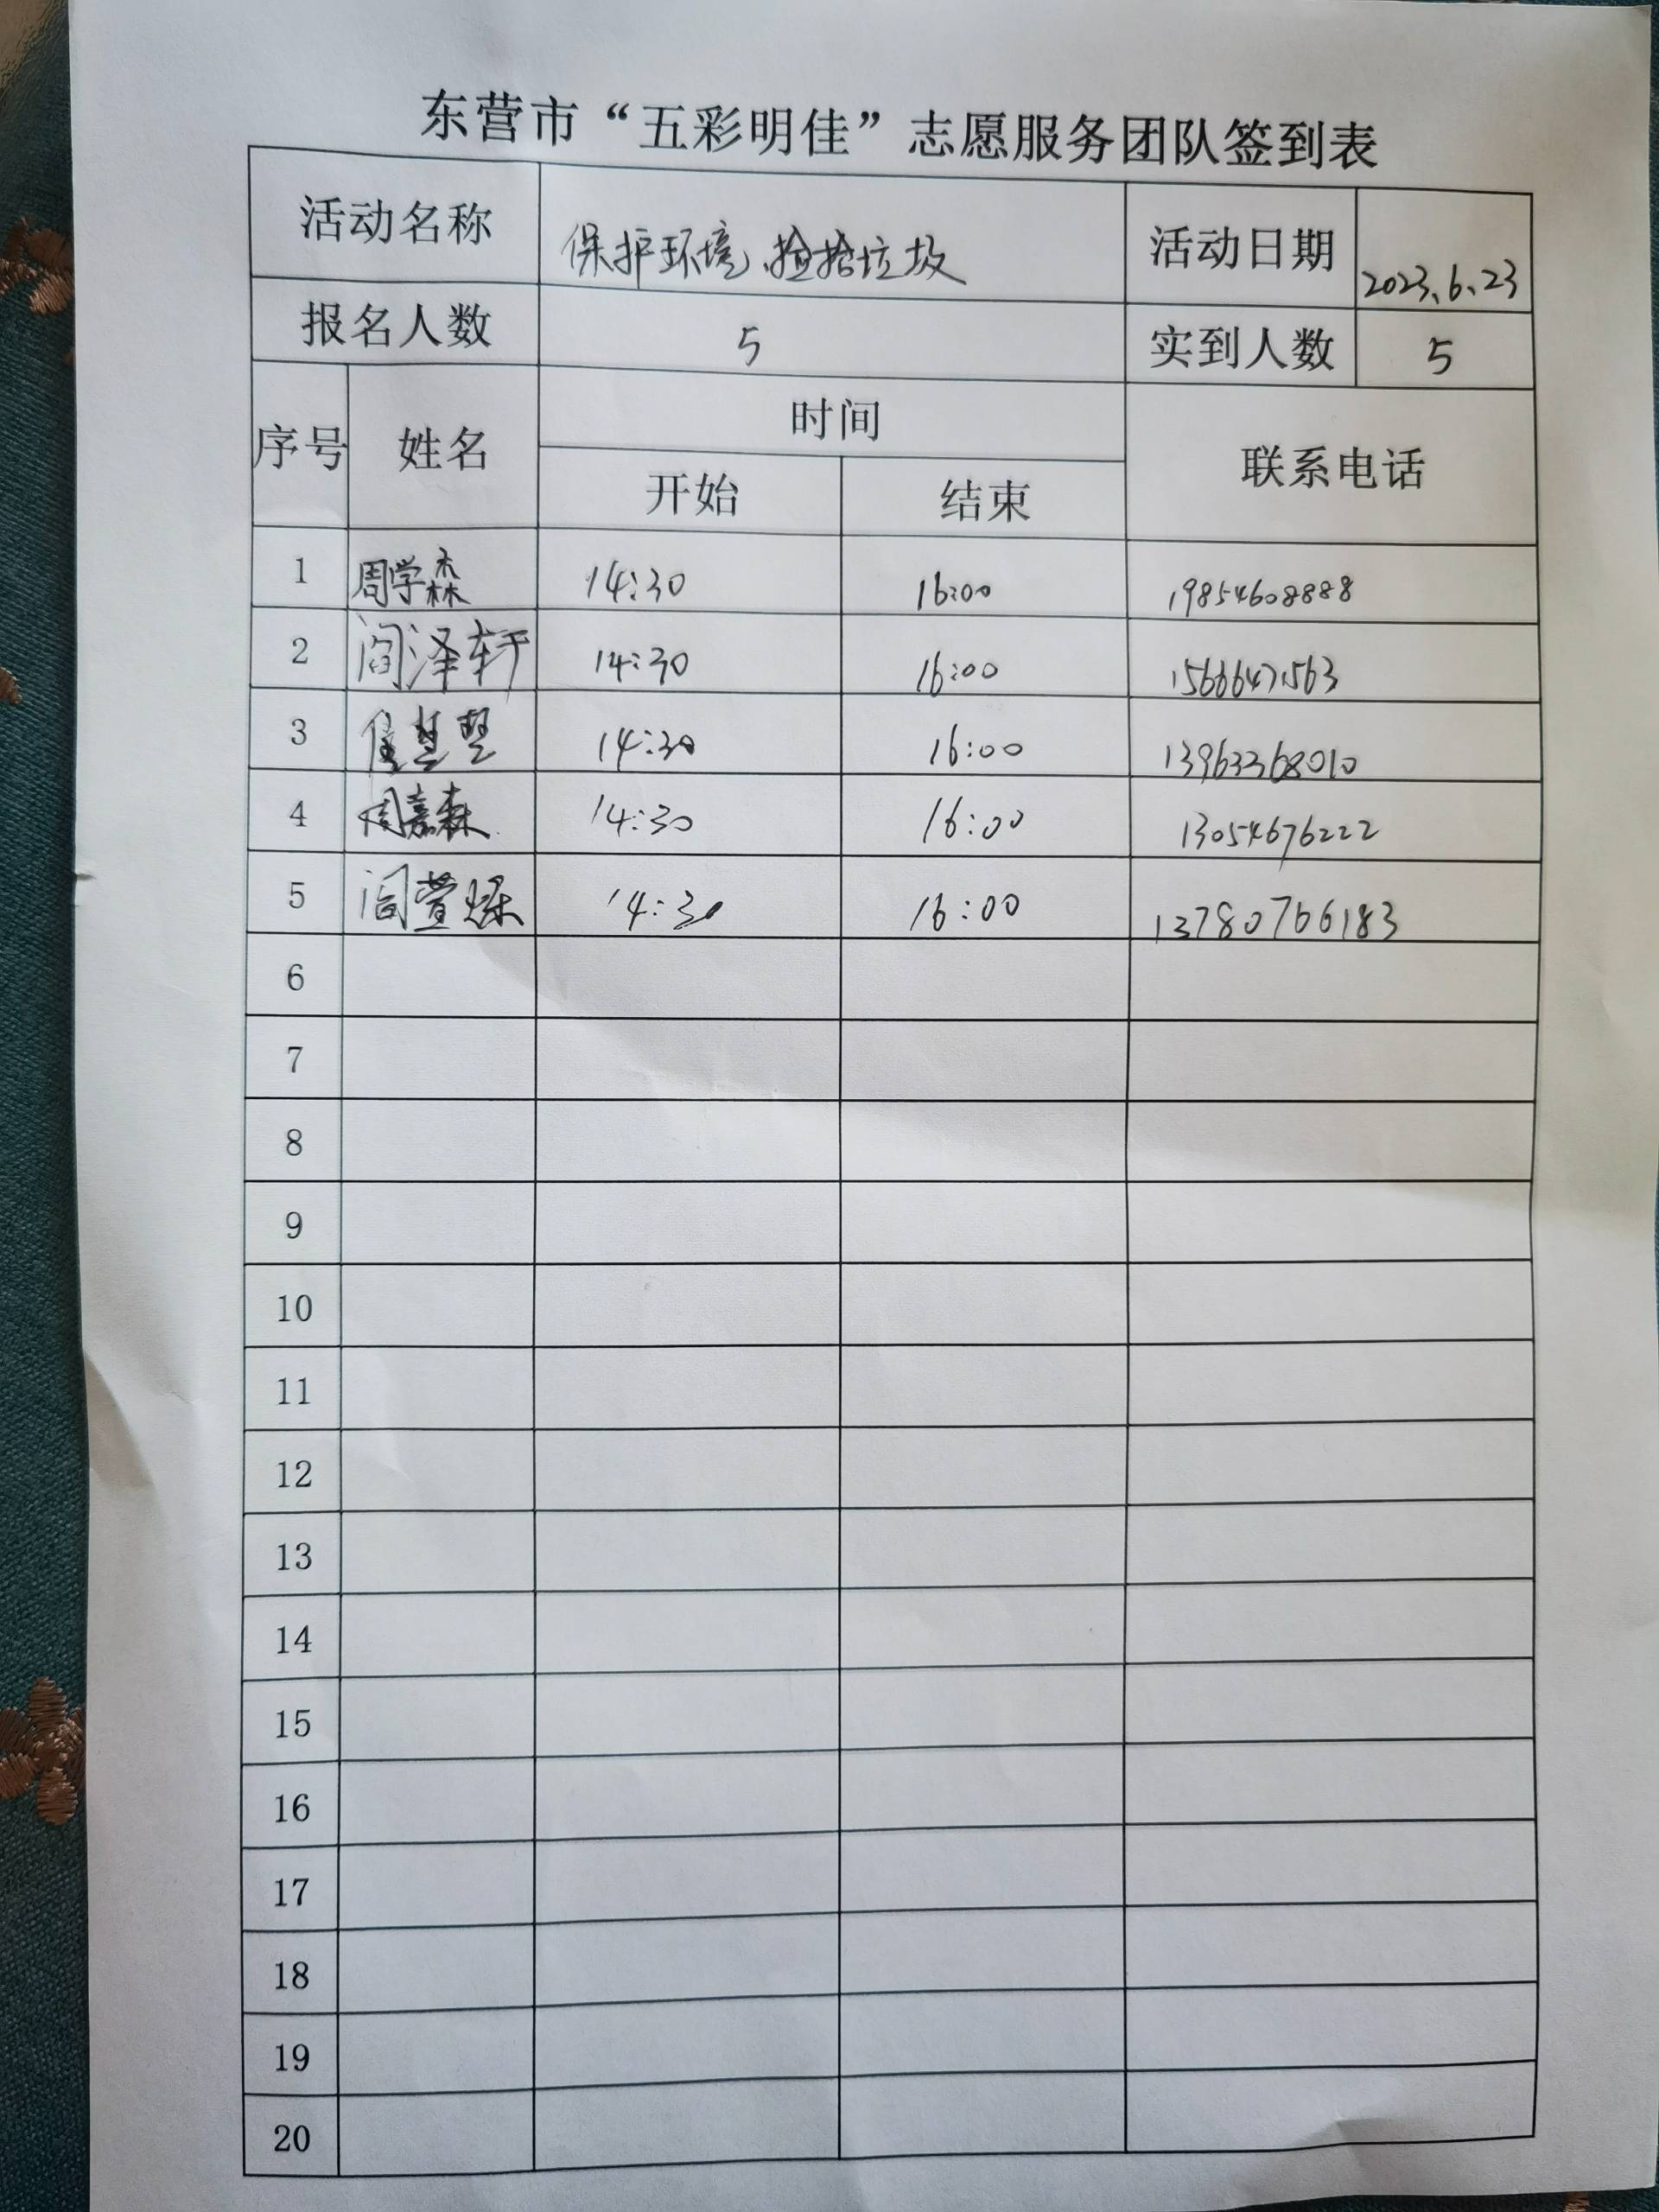 东营市“五彩明佳”志愿服务团队签到表
活动名称 保护环境、捡拾垃圾 活动日期 2023.6.23
报名人数 5 实到人数 5
序号 姓名 时间 联系电话
开始 结束
1 周学森 14:30 16:00 19854608888
2 阎泽轩 14:30 16:00 15666471563
3 14:30 16:00 13963368010
4 周嘉森 14:30 16:00 13054676222
5 阎萱烁 14:30 16:00 13780766183
6
7
8
9
10
11
12
13
14
15
16
17
18
19
20